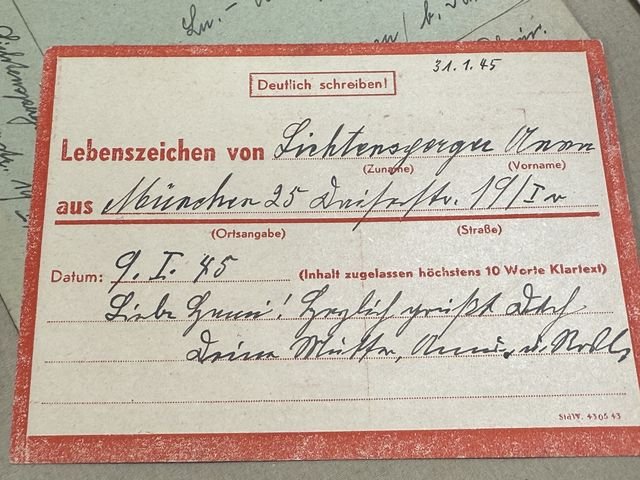 31.1.45
Deutlich schreiben!
Lebenszeichen von Lichtensperger Anna
(Zuname) (Vorname)
aus München 25 Daiserstr. 19/I r
(Ortsangabe) (Straße)
Datum: 9. I. 45 (Inhalt zugelassen höchstens 10 Worte Klartext)
Liebe Hanni! Herzlich grüßt Dich
Deine Mutter, u.
StdW. 43 05 43